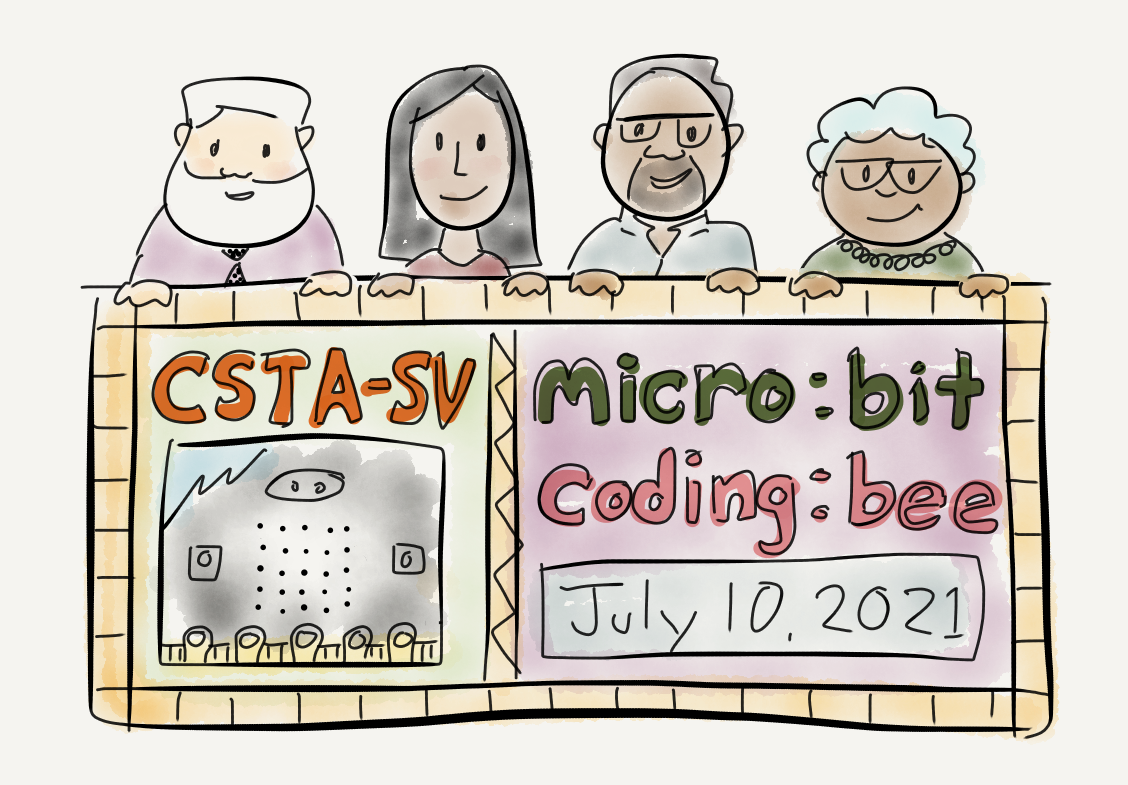 CSTA-SV
Micro:bit
Coding:bee
July 10, 2021